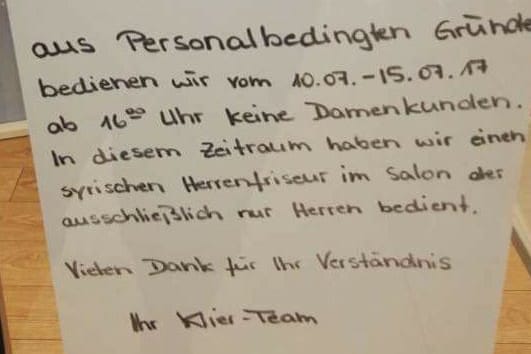 aus Personalbedingten Gründe
bedienen wir vom 10.07.-15.07.17
ab 16⁰⁰ Uhr keine Damenkunden.
In diesem Zeitraum haben wir einen
syrischen Herrenfriseur im Salon der
ausschließlich nur Herren bedient.
Vielen Dank für Ihr Verständnis
Ihr Klier-Team